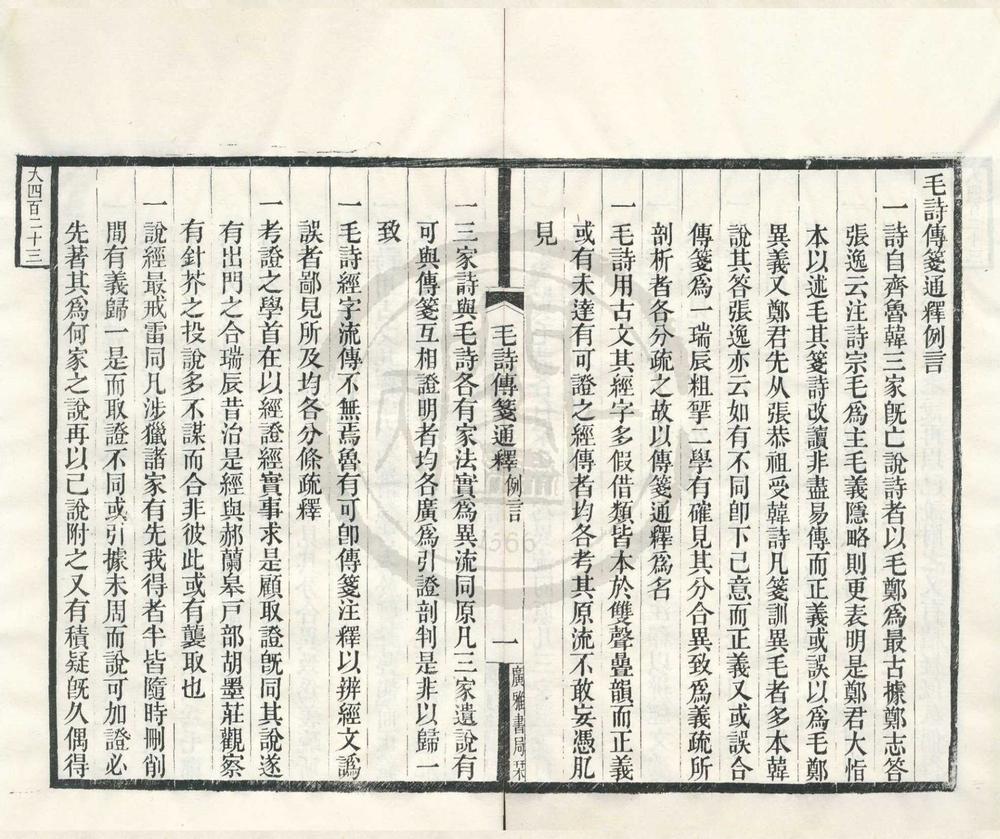 毛詩傳箋通釋例言
一詩自齊魯韓三家旣亡說詩者以毛鄭爲最古據鄭志答
張逸云注詩宗毛爲主毛義隱略則更表明是鄭君大恉
本以述毛其箋詩改讀非盡易傳而正義或誤以爲毛鄭
異義又鄭君先从張恭祖受韓詩凡箋訓異毛者多本韓
說其答張逸亦云如有不同卽下己意而正義又或誤合
傳箋爲一瑞辰粗擘二學有確見其分合異致爲義疏所
剖析者各分疏之故以傳箋通釋爲名
一毛詩用古文其經字多假借類皆本於雙聲疊韻而正義
或有未達有可證之經傳者均各考其原流不敢妄憑肊
見
毛詩傳箋通釋 例言
一
廣雅書局栞
一三家詩與毛詩各有家法實爲異流同原凡三家遺說有
可與傳箋互相證明者均各廣爲引證剖判是非以歸一
致
一毛詩經字流傳不無焉魯有可卽傳箋注釋以辨經文譌
誤者鄙見所及均各分條疏釋
一考證之學首在以經證經實事求是顧取證旣同其說遂
有出門之合瑞辰昔治是經與郝蘭皋戸部胡墨莊觀察
有針芥之投說多不謀而合非彼此或有襲取也
一說經最戒雷同凡涉獵諸家有先我得者半皆隨時刪削
間有義歸一是而取證不同或引據未周而說可加證必
先著其爲何家之說再以己說附之又有積疑旣久偶得
大四百二十三
1566